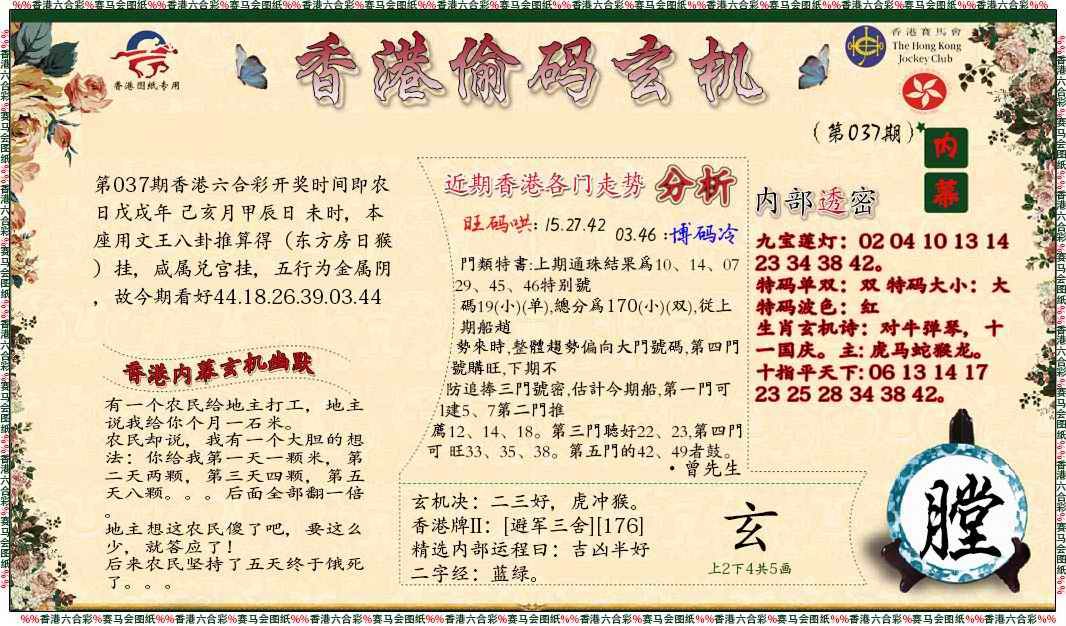 %%香港六合彩%赛马会图纸%%香港六合彩%赛马会图纸%%香港六合彩%赛马会图纸%%香港六合彩%赛马会图纸%%香港六合彩%赛马会图纸%%香港六合彩%赛马会图纸%%香港六合彩%赛马会图纸%%香港六合彩%%
香港图纸专用
香港偷码玄机
香港賽馬會
The Hong Kong
Jockey Club
(第037期)
内
幕
第037期香港六合彩开奖时间即农
日戊戌年 己亥月甲辰日 未时，本
座用文王八卦推算得（东方房日猴
）挂，咸属兑宫挂，五行为金属阴
，故今期看好44.18.26.39.03.44
香港内幕玄机幽默
有一个农民给地主打工，地主
说我给你个月一石米。
农民却说，我有一个大胆的想
法：你给我第一天一颗米，第
二天两颗，第三天四颗，第五
天八颗。。。后面全部翻一倍
。
地主想这农民傻了吧，要这么
少，就答应了！
后来农民坚持了五天终于饿死
了。。。
近期香港各门走势 分析
旺码哄：15.27.42
03.46：博码冷
門類特書:上期通珠結果爲10、14、07
29、45、46特别號
碼19(小)(单),總分爲170(小)(双),從上
期船趙
勢來時,整體趨勢偏向大門號碼,第四門
號購旺,下期不
防追捧三門號密,估計今期船,第一門可
1建5、7第二門推
薦12、14、18。第三門聽好22、23,第四門
可 旺33、35、38。第五門的42、49者鼓。
·曾先生
玄机决：二三好，虎冲猴。
香港牌II：[避军三舍][176]
精选内部运程曰：吉凶半好
二字经：蓝绿。
玄
上2下4共5画
内部透密
九宝莲灯：02 04 10 13 14
23 34 38 42。
特码单双：双 特码大小：大
特码波色：红
生肖玄机诗：对牛弹琴，十
一国庆。主：虎马蛇猴龙。
十指平天下：06 13 14 17
23 25 28 34 38 42。
膛
%%香港六合彩%赛马会图纸%%香港六合彩%赛马会图纸%%香港六合彩%赛马会图纸%%香港六合彩%赛马会图纸%%
%%香港六合彩%赛马会图纸%%香港六合彩%赛马会图纸%%香港六合彩%赛马会图纸%%香港六合彩%赛马会图纸%%
%%香港六合彩%赛马会图纸%%香港六合彩%赛马会图纸%%香港六合彩%赛马会图纸%%香港六合彩%赛马会图纸%%香港六合彩%赛马会图纸%%香港六合彩%赛马会图纸%%香港六合彩%赛马会图纸%%香港六合彩%%